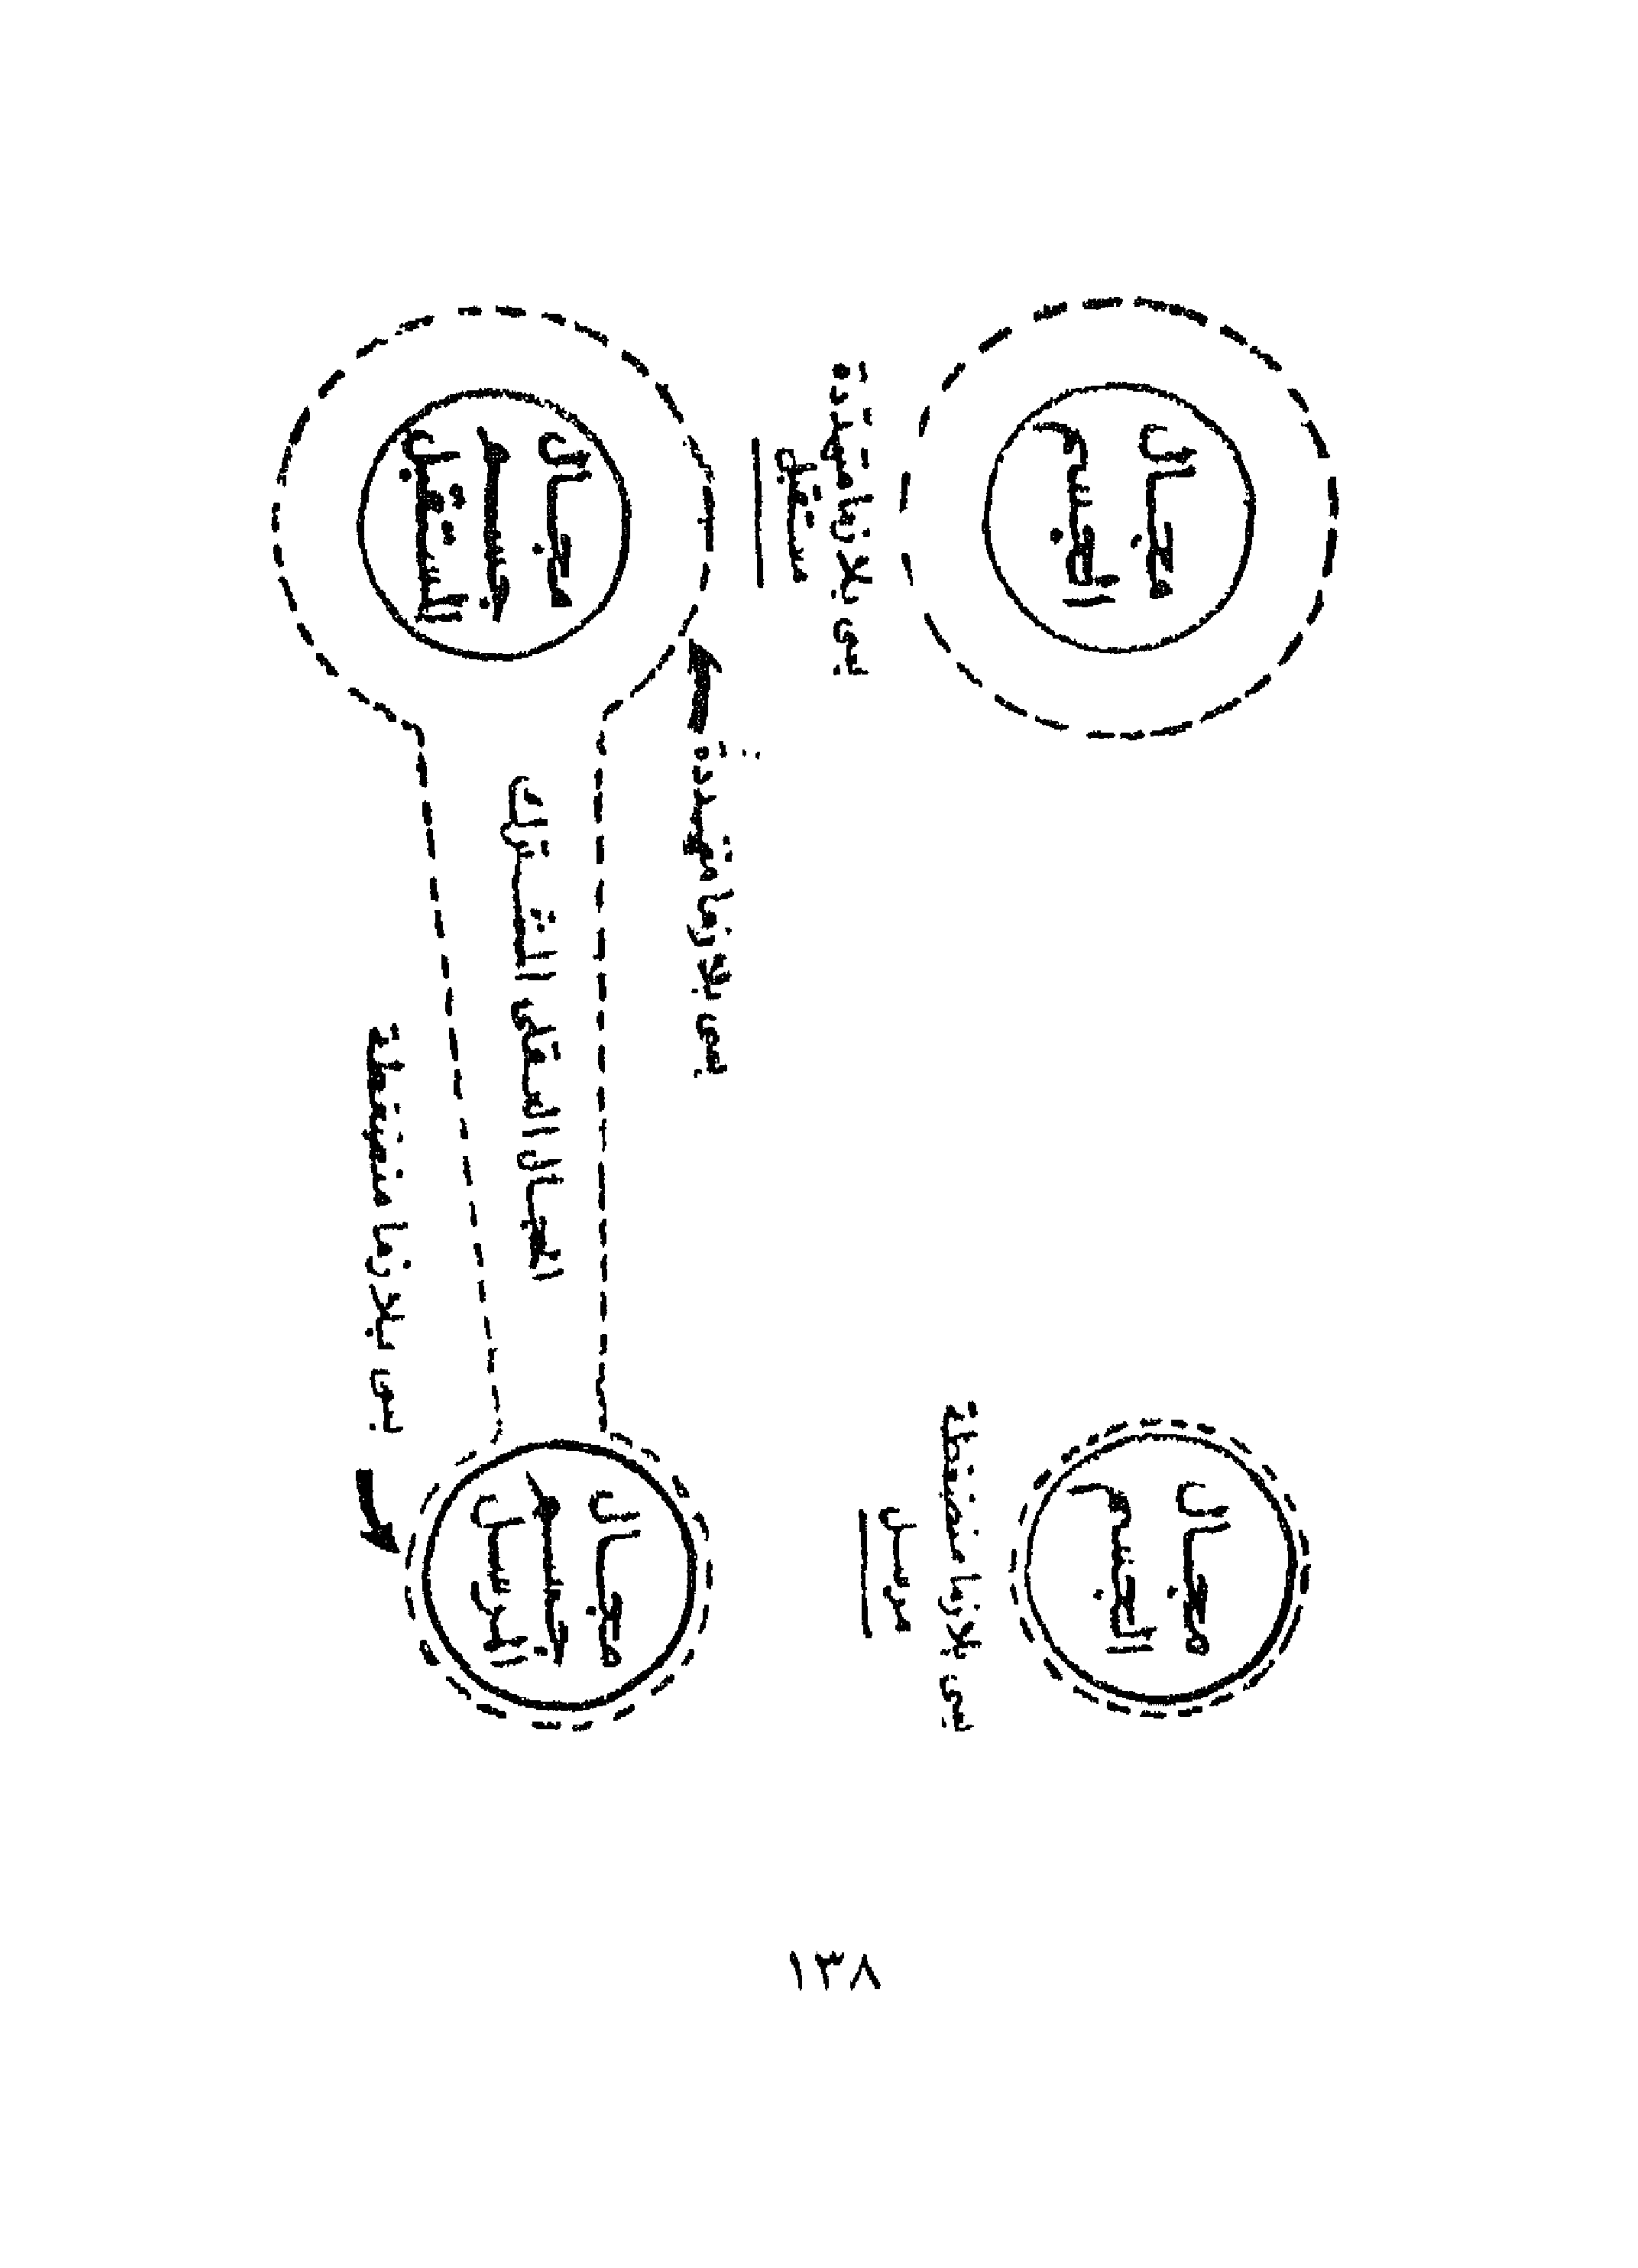 مجال
الجسم
بسى بلازما منضغطة
مرسل
مجال
الجسم
بسى بلازما متمددة
مستقبل
بسى بلازما متمددة
مجال
جسم
المرسل
المجال العقلى المشترك
مجال
جسم
المستقبل
بسى بلازما منضغطة
١٣٨